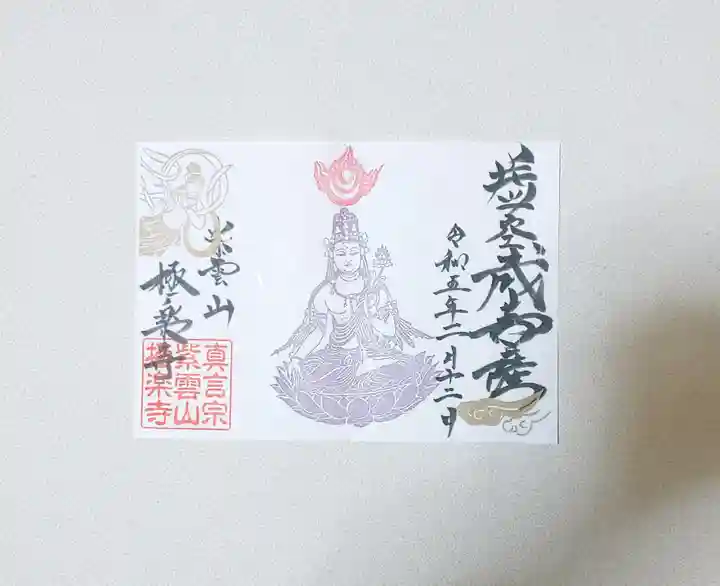 虚空蔵菩薩
令和五年二月十二日
紫雲山
極楽寺
真言宗
紫雲山
極楽寺